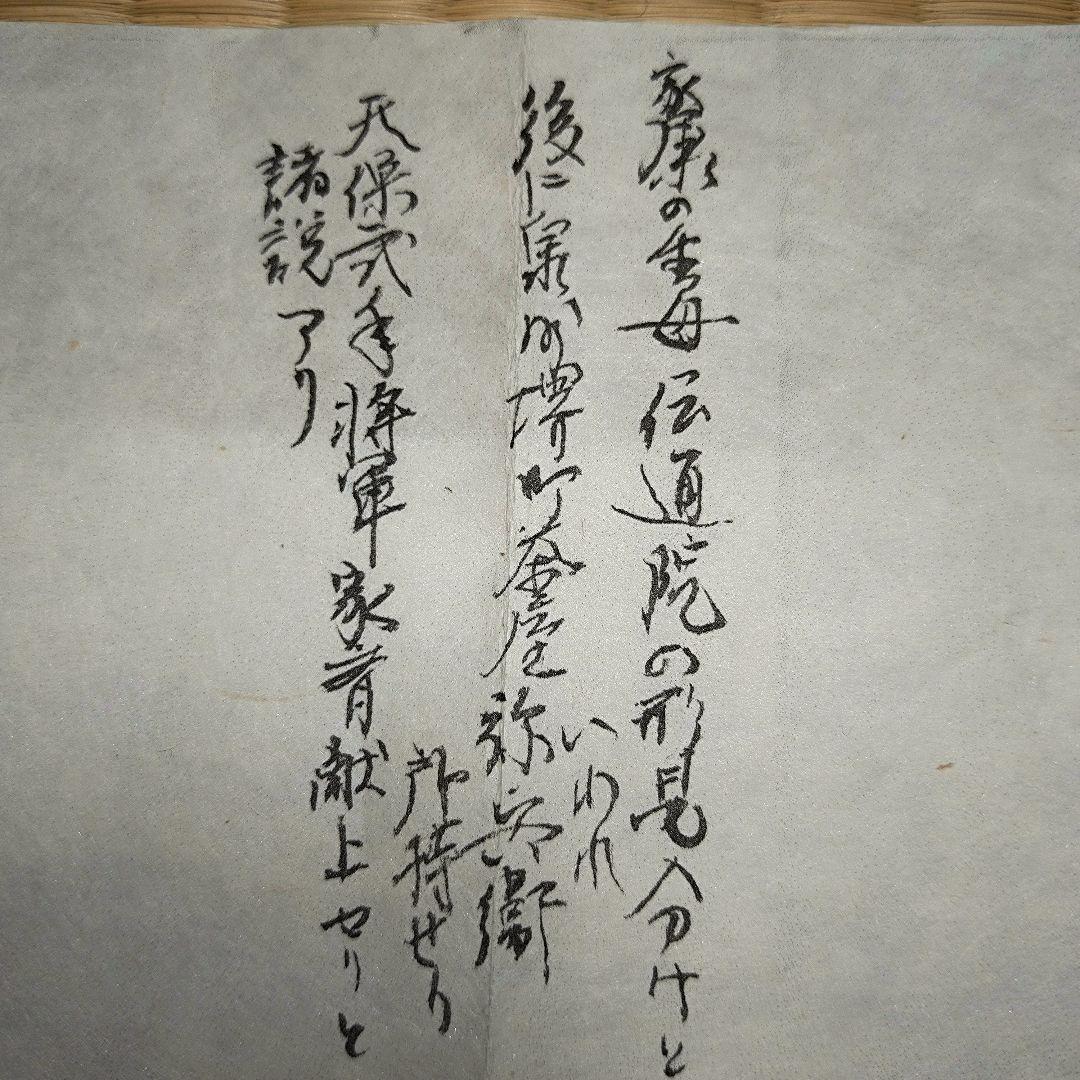 家康の生母伝通院の形見分けと
いわれ
後に泉州堺町茶屋弥兵衛
所持せり
天保弐年将軍家斉献上せりと
諸説アリ